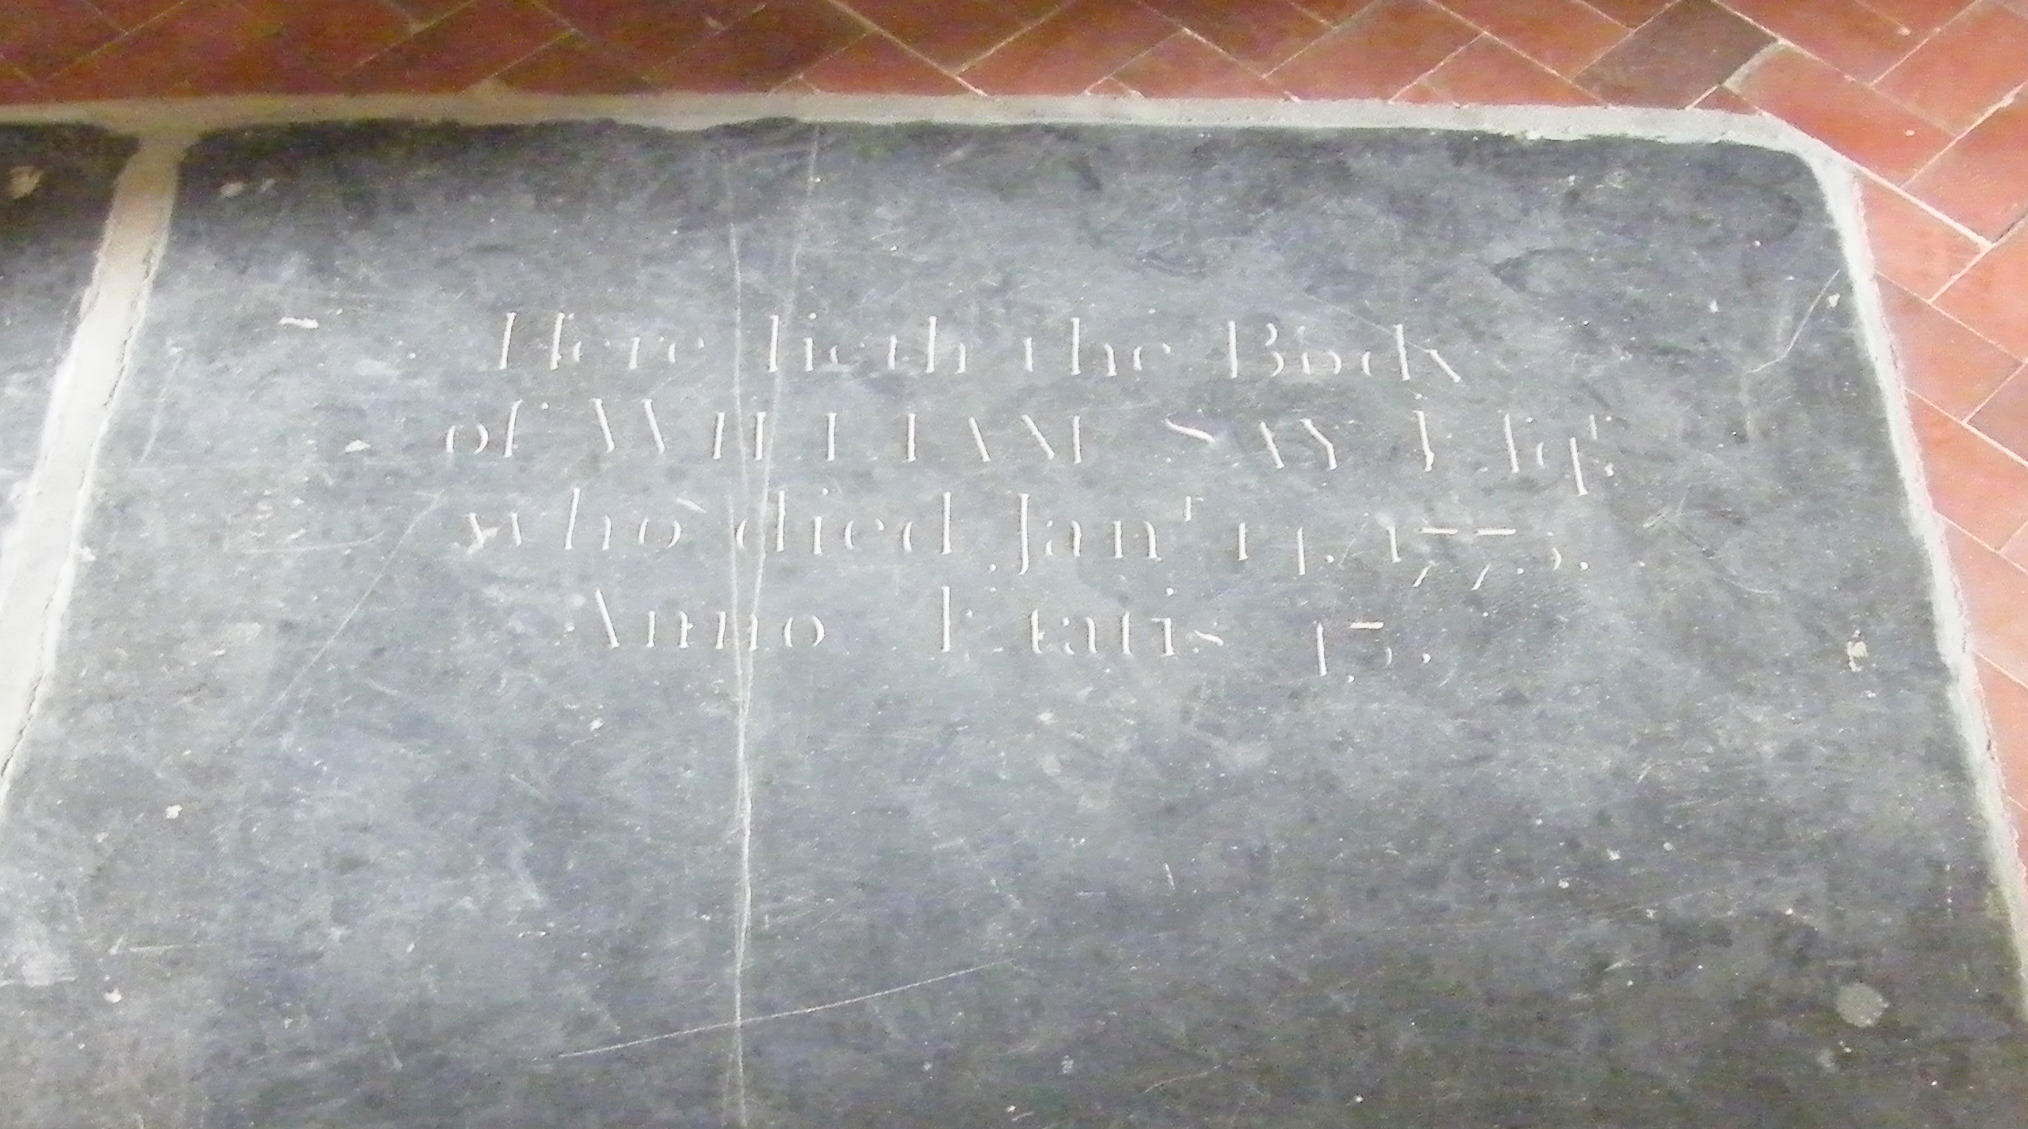 Here lieth the Body
of WILLIAM SAY Eſqʳ.
who died Janʳ 14, 1773.
Anno Etatis 45.